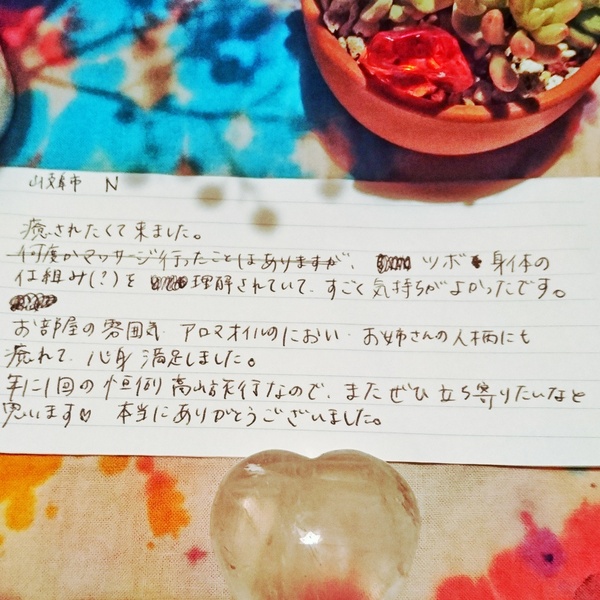 岐阜市 N
癒されたくて来ました。
何度かマッサージ行ったことはありますが、 ツボ 身体の
仕組み(?)を 理解されていて、すごく気持ちがよかったです。
お部屋の雰囲気・アロマオイルのにおい・お姉さんの人柄にも
癒れて、心身満足しました。
年に1回の恒例高山旅行なので、またぜひ立ち寄りたいなと
思います♡ 本当にありがとうございました。